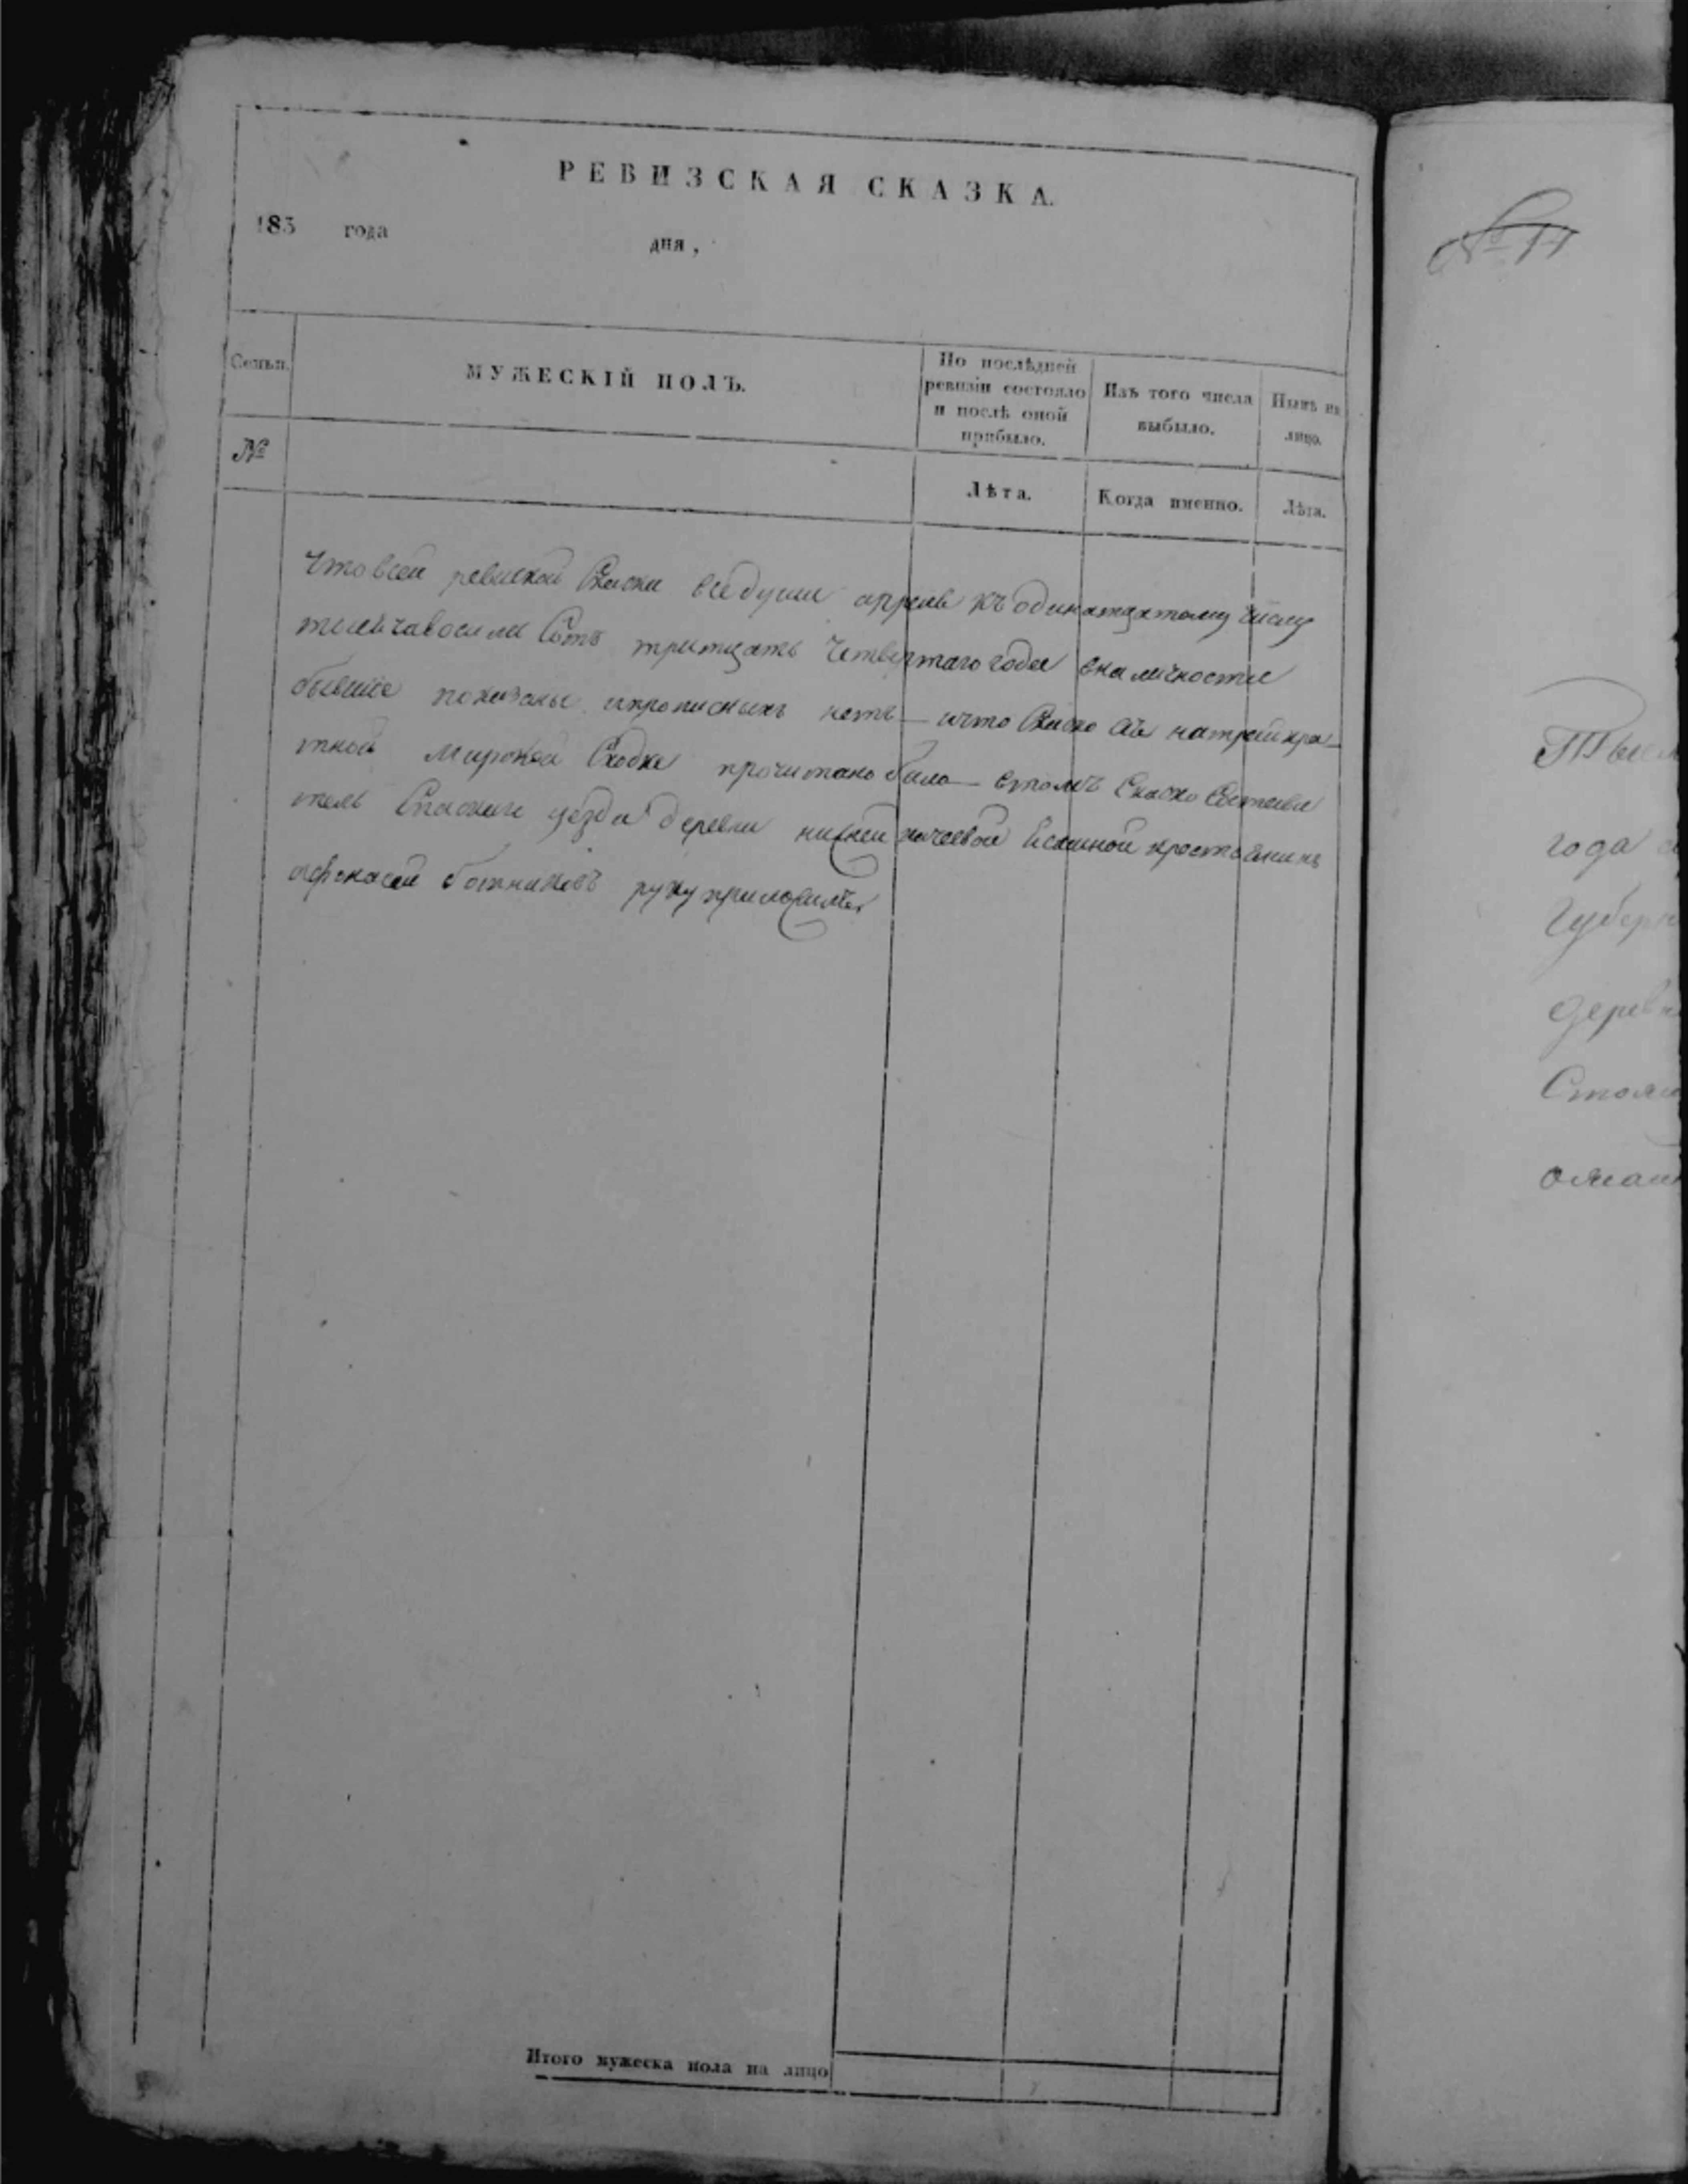 РЕВИЗСКАЯ СКАЗКА.
183 года дня,
Семьи.
МУЖЕСКІЙ ПОЛЪ.
По послѣдней ревизіи состояло и послѣ оной прибыло.
Изъ того числа выбыло.
Нынѣ на лицо.
№
Лѣта.
Когда именно.
Лѣта.
что всей ревиской Скаски все души к одинатцатому числу
тысеча восим Сотъ тритцать Четвертаго года вналичности
бывшие показаны ипрописныхъ нетъ — ичто Скаско натрейкра-
тной Мирской Сходке прочитано было — втомъ Скаско
тель Спаскаго уезда деревни нижней крестьянинъ
афонасей ботниковъ руку приложилъ
Итого мужеска пола на лицо
№ 11
года
Губерн
деревн